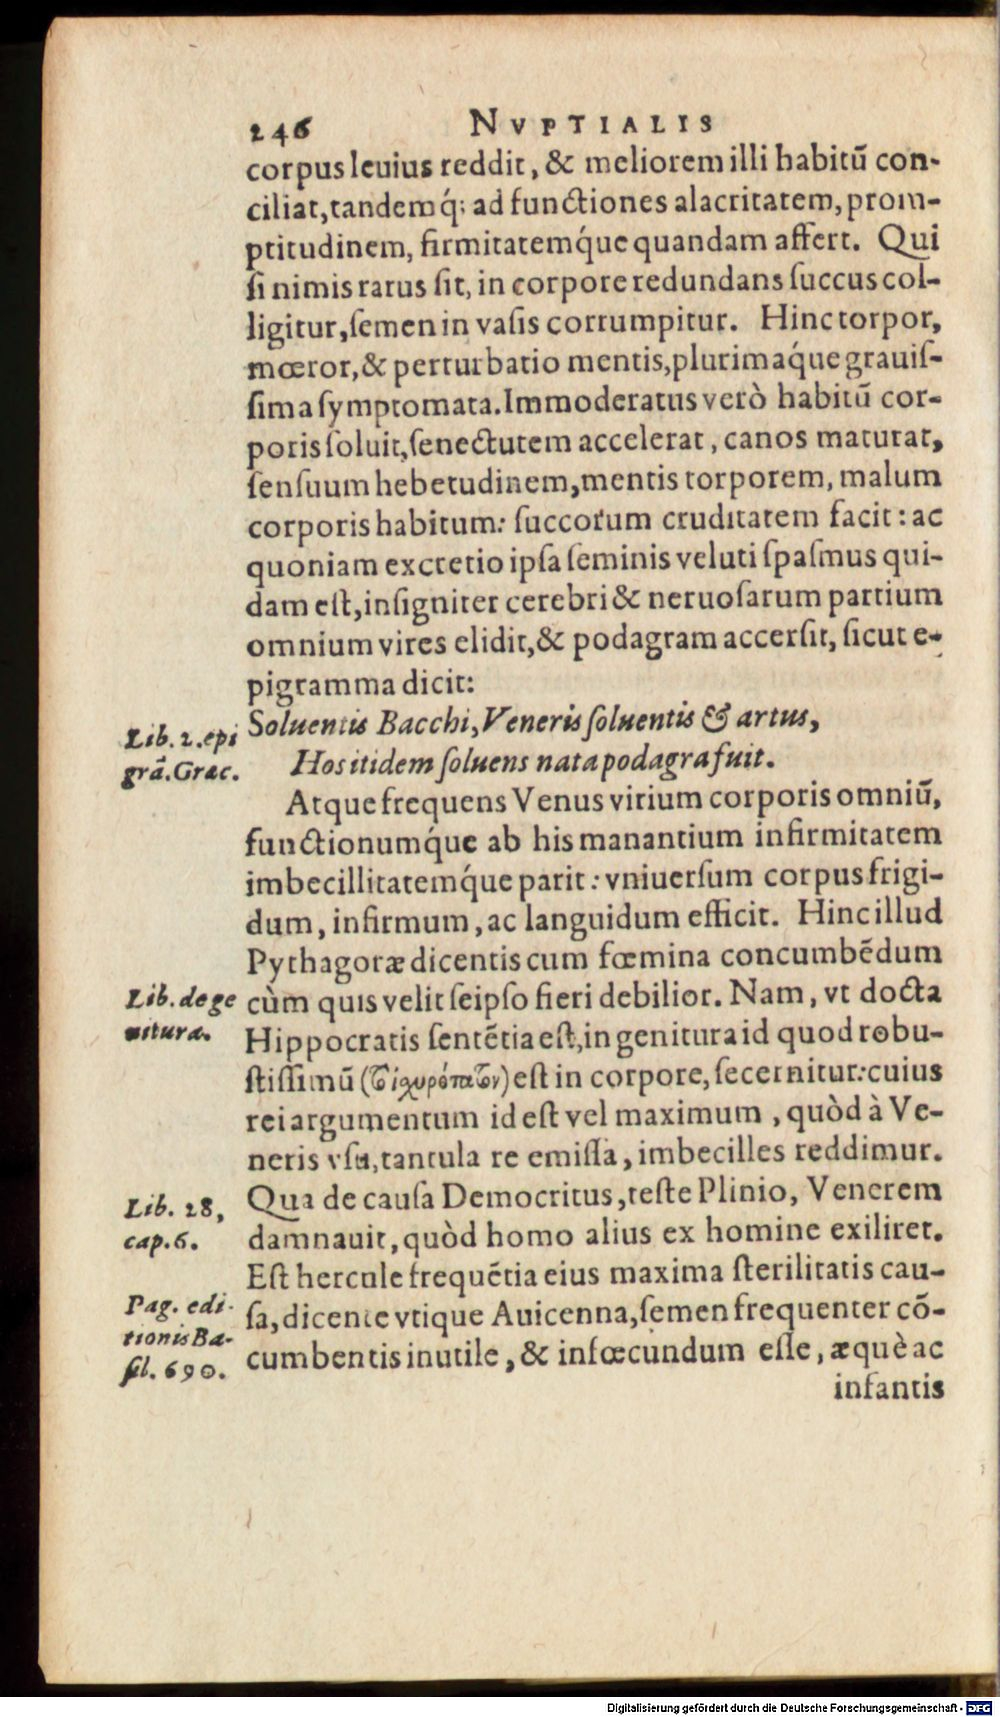 246 NVPTIALIS
corpus leuius reddit, & meliorem illi habitū con-
ciliat, tandemq́; ad functiones alacritatem, prom-
ptitudinem, firmitatemq́ue quandam affert. Qui
ſi nimis rarus ſit, in corpore redundans ſuccus col-
ligitur, ſemen in vaſis corrumpitur. Hinc torpor,
mœror, & perturbatio mentis, plurimaq́ue grauiſ-
ſima ſymptomata. Immoderatus verò habitū cor-
poris ſoluit, ſenectutem accelerat, canos maturat,
ſenſuum hebetudinem, mentis torporem, malum
corporis habitum: ſuccorum cruditatem facit: ac
quoniam excretio ipſa ſeminis veluti ſpaſmus qui-
dam eſt, inſigniter cerebri & neruoſarum partium
omnium vires elidit, & podagram accerſit, ſicut e-
pigramma dicit:
Soluentis Bacchi, Veneris ſoluentis & artus,
Lib. 2. epi
grā. Græc.
Hos itidem ſoluens nata podagra fuit.
Atque frequens Venus virium corporis omniū,
functionumq́ue ab his manantium infirmitatem
imbecillitatemq́ue parit: vniuerſum corpus frigi-
dum, infirmum, ac languidum efficit. Hinc illud
Pythagoræ dicentis cum fœmina concumbēdum
Lib. de ge
nitura.
cùm quis velit ſeipſo fieri debilior. Nam, vt docta
Hippocratis ſentētia eſt, in genitura id quod robu-
ſtiſſimū (τὸ ἰχυρόπατον) eſt in corpore, ſecernitur: cuius
rei argumentum id eſt vel maximum, quòd à Ve-
neris vſu, tantula re emiſſa, imbecilles reddimur.
Lib. 28,
cap. 6.
Qua de cauſa Democritus, teſte Plinio, Venerem
damnauit, quòd homo alius ex homine exiliret.
Eſt hercule frequētia eius maxima ſterilitatis cau-
Pag. edi-
tionis Ba-
ſil. 690.
ſa, dicente vtique Auicenna, ſemen frequenter cō-
cumbentis inutile, & infœcundum eſſe, æquè ac
infantis
Digitalisierung gefördert durch die Deutsche Forschungsgemeinschaft - DFG